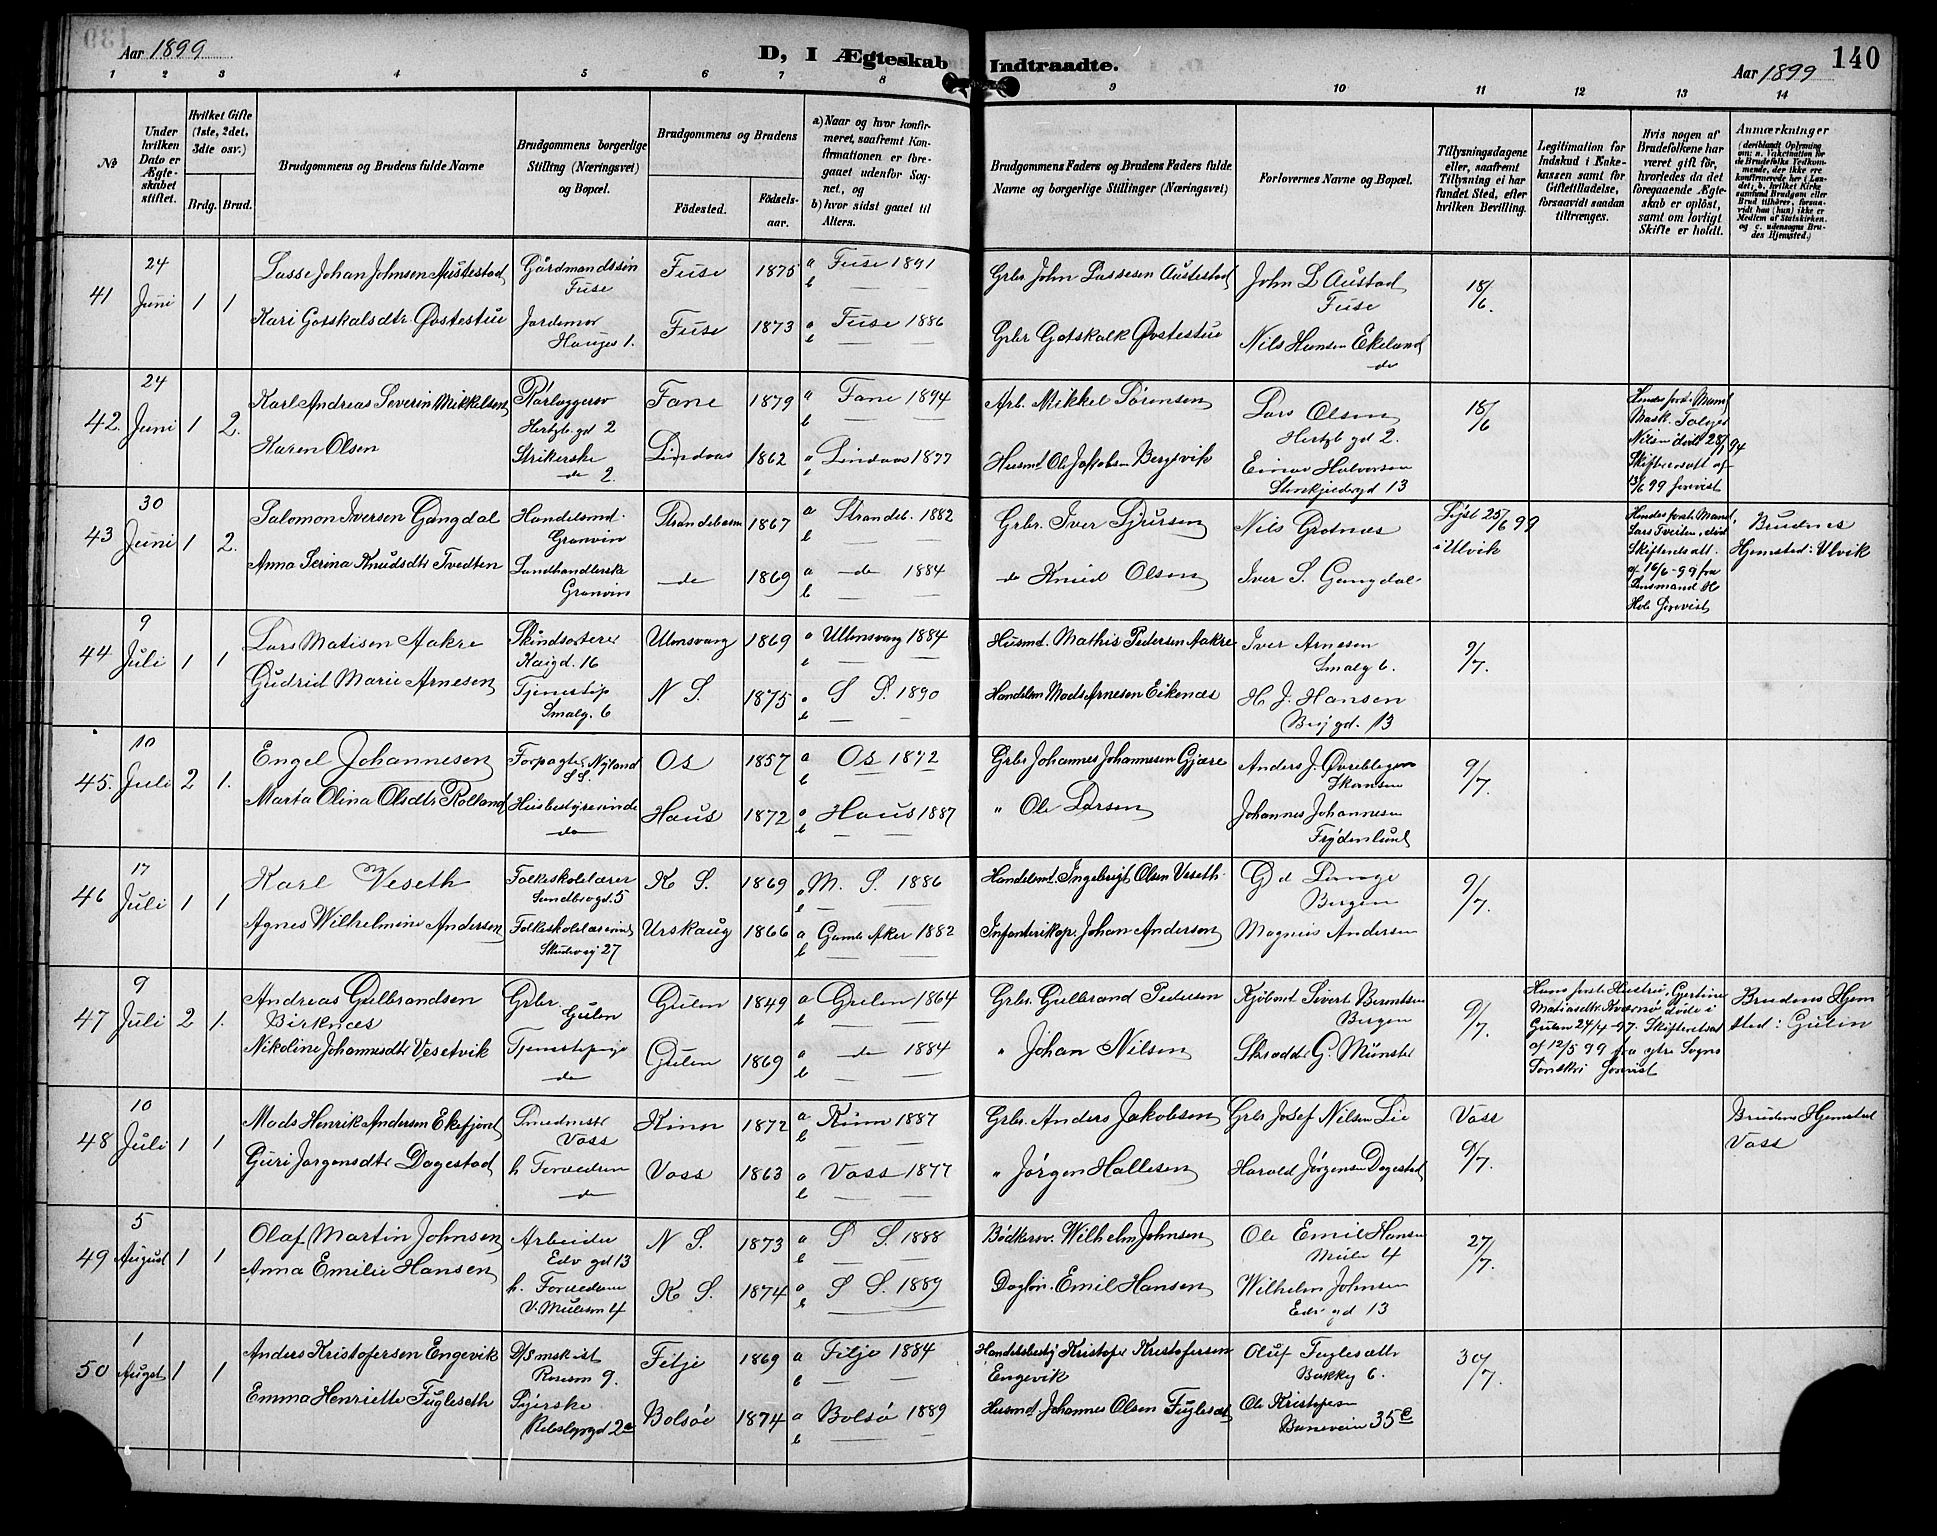 Aar 1899
D, I Ægteskab Indtraadte.
140
Aar 1899
1 2 3 4 5 6 7 8 9 10 11 12 13 14
No
Under hvilken Dato er Ægteskabet stiftet.
Hvilket Gifte (1ste, 2det, 3die osv.)
Brdg. Brud.
Brudgommens og Brudens fulde Navne
Brudgommens borgerlige Stilling (Næringsvei) og Bopæl.
Brudgommens og Brudens
Fødested.
Fødselsaar.
a) Naar og hvor konfirmeret, saafremt Konfirmationen er foregaaet udenfor Sognet, og
b) hvor sidst gaaet til Alters.
Brudgommens Faders og Brudens Faders fulde Navne og borgerlige Stillinger (Næringsvei)
Forlovernes Navne og Bopæl.
Tillysningsdagene eller, saafremt Tillysning ei har fundet Sted, efter hvilken Bevilling.
Legitimation for Indskud i Enkekassen samt for Giftetilladelse, forsaavidt saadan tiltrænges.
Hvis nogen af Brudefolkene har været gift før, hvorledes da det foregaaende Ægteskab er opløst, samt om lovligt Skifte er holdt.
Anmærkninger
(deriblandt Oplysning om: a. Vakcination for de Brudefolks Vedkommende, der ikke ere konfirmerede her i Landet; b. hvilket Kirkesamfund Brudgom eller Brud tilhører, forsaavidt han (hun) ikke er Medlem af Statskirken, og c. udensogns Brudes Hjemsted.)
41 24 Juni 1 1
Lasse Johan Johnsen Austestad Gårdmandssøn Fuse Fuse 1875 a Fuse 1891 b — Grbr John Lassesen Austestad John L Austad Fuse 18/6.
Kari Gotskalsdtr Øvstestue Jordemor Hauges 1. Fuse 1873 a Fuse 1886 b — Grbr Gotskalk Øvstestue Nils Hansen Ekeland do
42. 24 Juni 1 2.
Karl Andreas Severin Mikkelsen Rørlæggersv Hertzb gd 2 Fane 1879 a Fane 1894 b — Arb. Mikkel Sørensen Lars Olsen Hertzb gd 2. 18/6
Karen Olsen Strikerske do 2. Lindaas 1862 a Lindaas 1877 b — Husmd Ole Jakobsen Bergsvik Einar Halvorsen 13
Hendes første Mand Mask. Nilsen død 28/1 94 Skifteretsatt af 13/6 99 forevist
43 30 Juni 1 2.
Salomon Iversen Gangdal Handelsmd. Granvin Strandebarm 1867 a Strandeb. 1882 b — Grbr. Iver Sjursen Nils Grotnæs Lyst 25/6 99 i Ulvik
Anna Serina Knudsdtr Tvedten Landhandlerske Granvin do 1869 a do 1884 b Knud Olsen Iver S. Gangdal
Hendes første Mand, Lars Tveiten, død Skifteretsatt. af 16/6-99 fra Lensmand forevist
Brudens Hjemsted: Ulvik
44 9 Juli 1 1
Lars Matisen Aakre Skindsorterer Kaigd. 16 Ullensvang 1869 a Ullensvang 1884 b — Husmd. Mathis Pedersen Aakre Iver Arnesen Smalg 6. 9/7.
Gudrid Marie Arnesen Tjenestep Smalg. 6 N S. 1875 a S S. 1890 b — Handelsm Mads Arnesen Eikenæs H J. Hansen 13
45. 10 Juli 2 1.
Engel Johannesen Forpagter Nyland Os 1857 a Os 1872 b — Grbr Johannes Johannesen Gjære Anders J. Skansen 9/7.
Marta Olina Olsdtr Rolland Husbestyrerinde do Haus 1872 a Haus 1887 b — " Ole Larsen Johannes Johannesen Frydenlund
46 17 Juli 1 1
Karl Veseth Folkeskolelærer Sundbrogd. 5 K S. 1869 a M. S. 1886 b — Handelsmd. Ingebrigt Olsen Veseth Lange Bergen 9/7.
Agnes Wilhelmine Andersen Folkeskolelærerind 27 Urskaug 1866 a Gamle Aker 1882 b — Infanterikap. Johan Anderson Magnus Andersen
47 9 Juli 2 1.
Andreas Gulbrandsen Birknæs Grbr. Gulen Gulen 1849 a Gulen 1864 b — Grbr. Gulbrand Pedersen Kjøbmd Sivert Berntsen Bergen 9/7.
Nikoline Johannesdtr Vesetvik Tjenestepige do Gulen 1869 a do 1884 b — " Johan Nilsen Skrædder G. Münster
Hans første Hustru, Gjertine Matiasdtr. Kværnø døde i Gulen 24/4-97. Skifteretsat af 12/5 99 fra ytre Sogns forevist
Brudens Hjemsted: Gulen
48 10 Juli 1 1
Mads Henrik Andersen Ekefjord Smedmstr Voss Kinn 1872 a Kinn 1887 b — Grbr. Anders Jakobsen Grbr Josef Nilsen Lie Voss 9/7.
Guri Jørgensdtr Dagestad h Forældrene do Voss 1863 a Voss 1877 b — " Jørgen Hallesen Harald Jørgensen Dagestad
Brudens Hjemsted Voss
49 5 August 1 1
Olaf Martin Johnsen Arbeider Edv gd 13 N S. 1873 a S S. 1888 b — Bødkersv. Wilhelm Johnsen Ole Emil Hansen 4 27/7.
Anna Emilie Hansen h. Forældrene V. 4 K S. 1874 a S S. 1889 b — Dagløn. Emil Hansen Wilhelm Johnsen Edv gd 13
50 1 August 1 1
Anders Kristofersen Engevik 9. Fitje 1869 a Fitje 1884 b — Handelsbestj Kristofer Kristofersen Engevik Oluf Fuglesæth Bakkeg 6. 30/7.
Emma Henriette Fugleseth Syerske 2a Bolsøe 1874 a Bolsø 1889 b — Husmd. Johannes Olsen Fuglesæt Ole Kristofersen 35 c